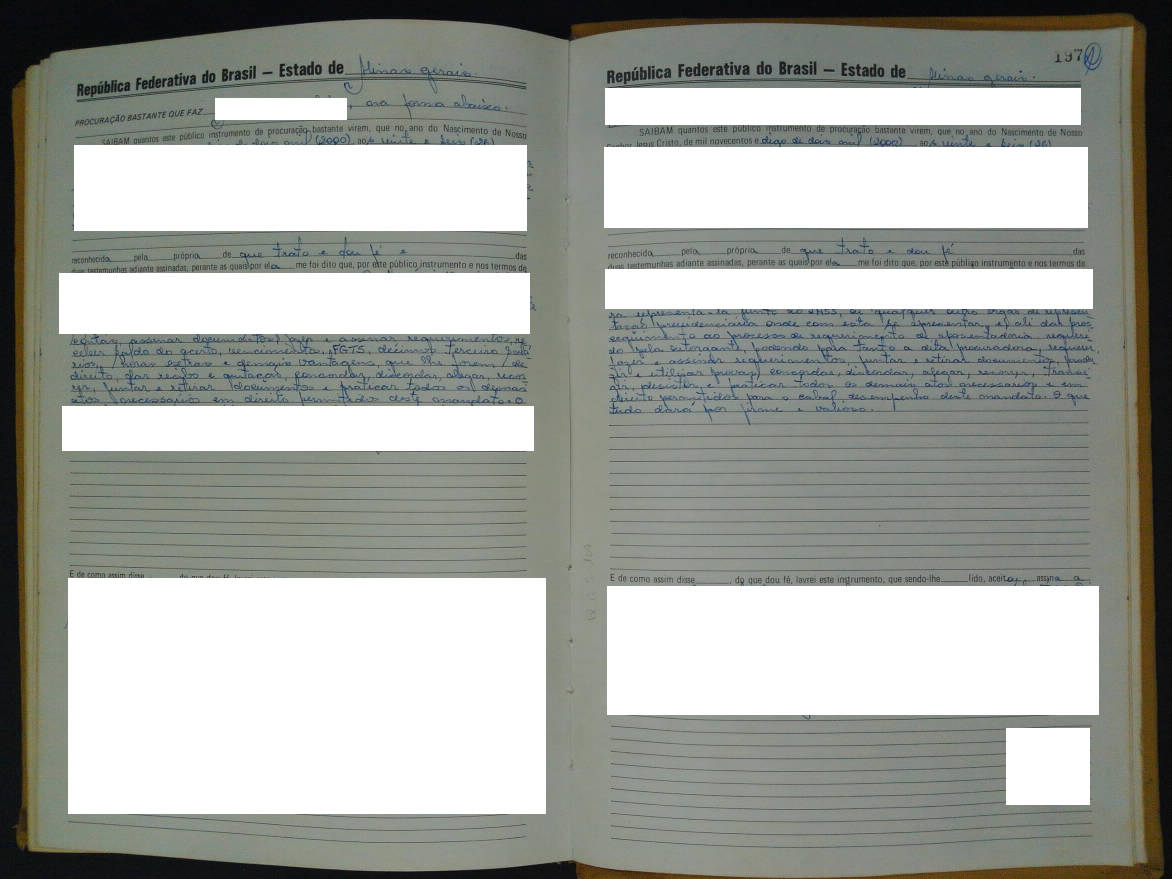 República Federativa do Brasil – Estado de Minas gerais.
PROCURAÇÃO BASTANTE QUE FAZ na forma abaixo.
SAIBAM quantos este público instrumento de procuração bastante virem, que no ano do Nascimento de Nosso
de dois mil (2000), aos vinte e seis (26)
reconhecida pela própria de que trato e dou fé e das
duas testemunhas adiante assinadas, perante as quais por ela me foi dito que, por este público instrumento e nos termos de
assinar documentos, e assinar requerimentos, re
ceber saldo de acerto, vencimentos, FGTS, décimo terceiro salá
rios, horas extras e demais vantagens, que lhe forem de
direito, dar recibo e quitação, concordar, discordar, alegar, recor
rer, juntar e retirar documentos e praticar todos os demais
atos necessários em direito permitidos deste mandato. O
E de como assim disse do que dou fé, lavrei
197
República Federativa do Brasil – Estado de Minas gerais.
SAIBAM quantos este público instrumento de procuração bastante virem, que no ano do Nascimento de Nosso
Senhor Jesus Cristo, de mil novecentos e digo de dois mil (2000) aos vinte e seis (26)
reconhecida pela própria de que trato e dou fé das
duas testemunhas adiante assinadas, perante as quais por ela me foi dito que, por este público instrumento e nos termos de
ra representa-la junto ao INSS, ou qualquer outro órgão de represen
tação previdenciária onde com esta se apresentar, e ali dar pros
seguimento ao processo de requerimento de aposentadoria, requeri
do pela outorgante, podendo para tanto a dita procuradora, requerer
fazer e assinar requerimentos, juntar e retirar documentos, produ
zir e utilizar provas, concordar, discordar, alegar, recorrer, transi
gir, desistir, e praticar todos os demais atos necessários e em
direito permitidos para o cabal desempenho deste mandato. O que
tudo dará por firme e valioso.
E de como assim disse, do que dou fé, lavrei este instrumento, que sendo-lhe lido, aceitou, assina a